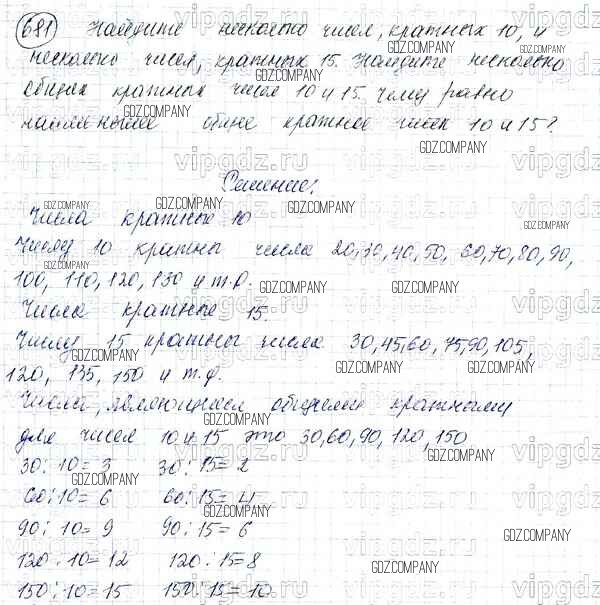 681 Найдите несколько чисел, кратных 10, и
несколько чисел, кратных 15. Найдите несколько
общих кратных чисел 10 и 15. Чему равно
наименьшее общее кратное чисел 10 и 15?
Решение:
Числа кратные 10
Числу 10 кратны числа 20,30,40,50, 60,70,80,90,
100, 110, 120, 130 и т.д.
Числа кратные 15.
Числу 15 кратны числа 30,45,60, 75,90,105,
120, 135, 150 и т.д.
Числа, являющиеся общими кратными
для чисел 10 и 15 это 30,60,90, 120, 150
30:10=3 30:15=2
60:10=6 60:15=4
90:10=9 90:15=6
120:10=12 120:15=8
150:10=15 150:15=10
GDZ.COMPANY
vipgdz.ru